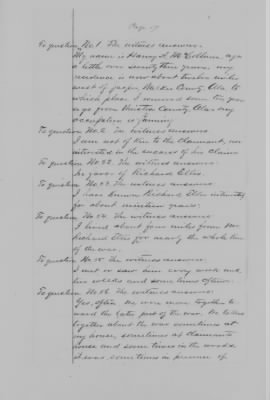 Page 17
To question No. 1 The witness answers:
My name is Harvey L. McCollum, age
a little over seventy three years, my
residence is now about twelve miles
west of Jasper, Walker County, Ala. to
which place I removed some ten years
ago from Winston County, Ala. my
occupation is farming
To question No. 2. The witness answers
I am not of kin to the claimant, nor
interested in the success of his claim
To question No. 22. The witness answers:
In favor of Richard Ellis.
To question No. 23. The witness answers
I have known Richard Ellis intimately
for about nineteen years.
To question No. 24. The witness answers:
I lived about four miles from Mr.
Richard Ellis for nearly the whole time
of the war.
To question No. 25. The witness answers:
I met or saw him every week and
two weeks and some times oftener.
To question No. 26. The witness answers:
Yes, often. We were more together to
ward the later part of the war. We talked
together about the war sometimes at
my house, sometimes at claimants
house and some times in the woods.
I was sometimes in presence of